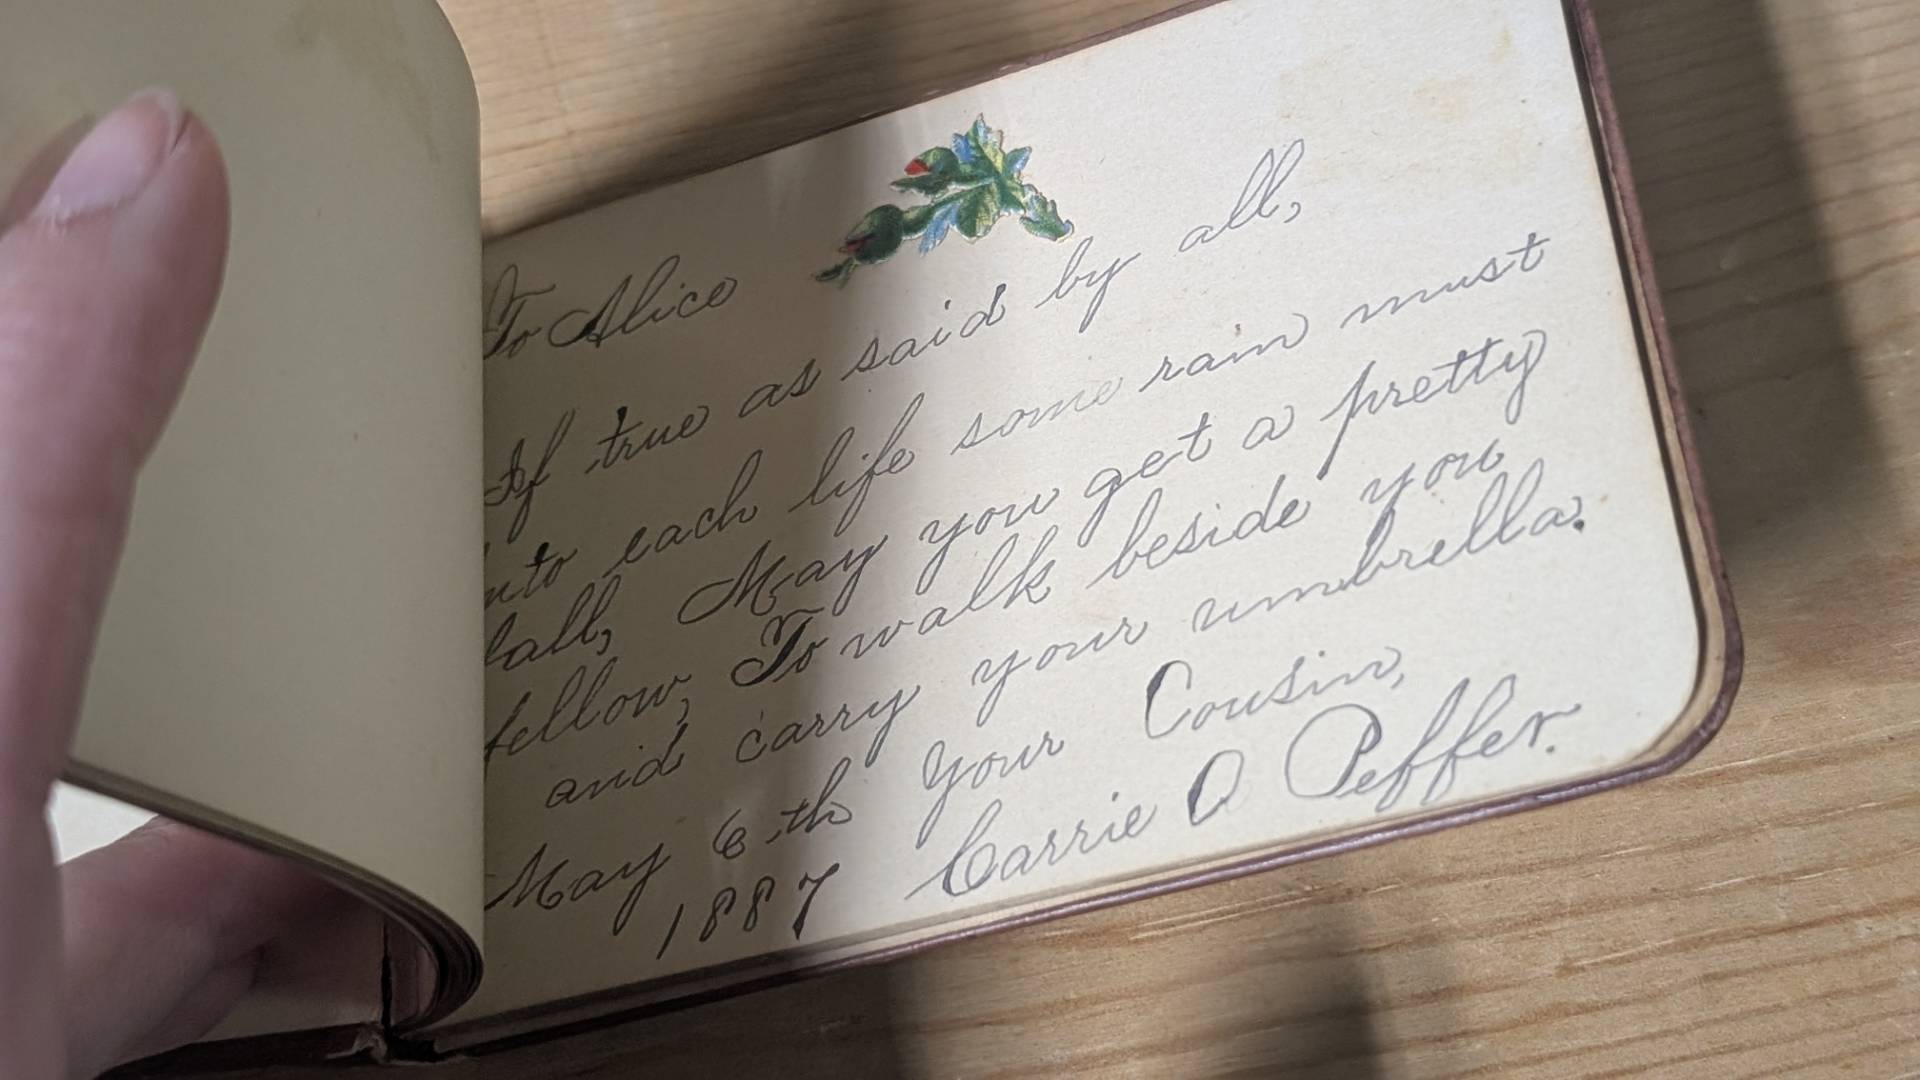 To Alice
If true as said by all,
into each life some rain must
fall, May you get a pretty
fellow, To walk beside you
and carry your umbrella.
May 6th Your Cousin,
1887 Carrie O Peffer.